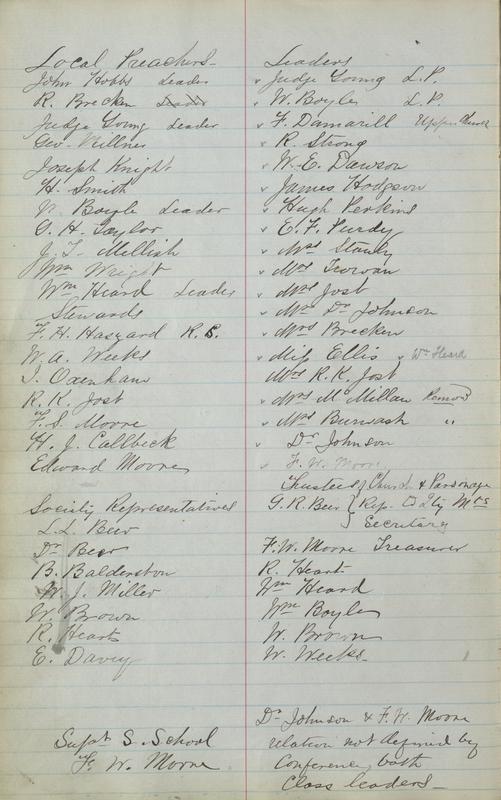 Local Preachers
John Hobbs Leader
R. Brecken Leader
Judge Young Leader
Geo. Millner
Joseph Knight
H. Smith
W. Boyle Leader
G. H. Taylor
J. T. Mellish
Wm Wright
Wm Heard Leader
Stewards
F. H. Haszard R. S.
W. A. Weeks
J. Oxenham
R. K. Jost
F. S. Moore
H. J. Callbeck
Edward Moore
Society Representatives
L. L. Beer
Dr Beer
B. Balderston
W. J. Miller
W. Brown
R. Hearts
E. Davey
Supt S. School
F. W. Moore
Leaders
v Judge Young L.P.
v W. Boyle L.P.
v F. Damarill Upper Church
v R. Strong
v W. E. Dawson
v James Hodgson
v Hugh Perkins
v E. F. Purdy
v Mrs Stanly
v Mrs Trowan
v Mrs Jost
v Mrs Dr Johnson
v Mrs Brecken
v Miss Ellis v Wm Heard
Mrs R. K. Jost
v Mrs McMillan Remov'd
v Mrs Burwash "
v Dr Johnson
v F. W. Moore
Trustees of Church & Parsonage
G. R. Beer } Rep. to Qtly Mtgs
Secretary
F. W. Moore Treasurer
R. Heart
Wm Heard
Wm Boyle
W. Brown
W. Weeks
Dr Johnson & F. W. Moore
relation not defined by
Conference both
Class leaders